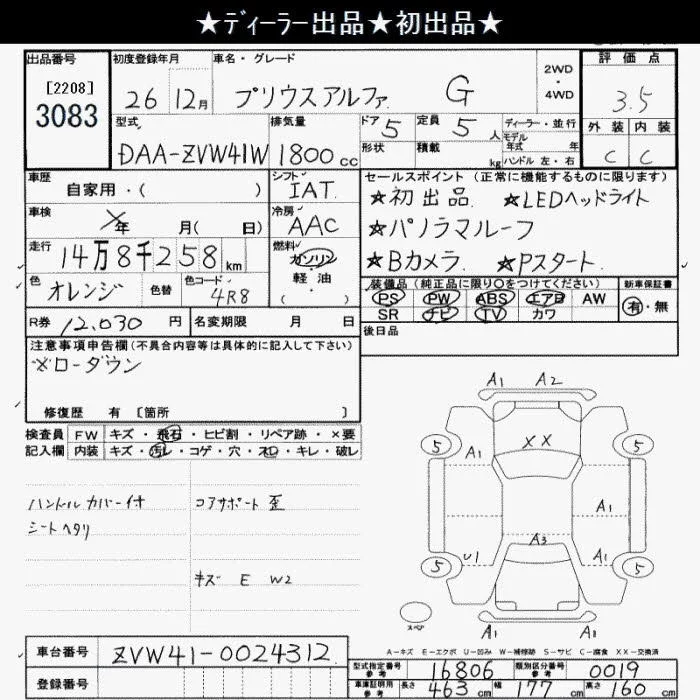 ★ディーラー出品★初出品★
出品番号
[2208]
3083
初度登録年月
26 12月
車名・グレード
プリウスアルファ G
2WD
・
4WD
評価点
3.5
外装 内装
C C
型式
DAA-ZVW41W
排気量
1800cc
ドア 5
定員 5人
形状
積載 kg
ディーラー・並行
モデル年式 年
ハンドル 左・右
車歴
自家用・( )
シフト
IAT
セールスポイント (正常に機能するものに限ります)
★初出品 ★LEDヘッドライト
★パノラマルーフ
★Bカメラ ★Pスタート
車検
年 月( 日)
冷房
AAC
走行
14万8千258km
燃料
ガソリン
軽油
( )
色
オレンジ
色替
色コード
4R8
装備品 (純正品に限り○をつけてください)
PS PW ABS エアB AW
SR ナビ TV カワ
新車保証書
有・無
R券 12,030円
名変期限 月 日
後日品
注意事項申告欄(不具合内容等は具体的に記入して下さい)
※ローダウン
修復歴 有 [箇所 ]
検査員記入欄
FW キズ・飛石・ヒビ割・リペア跡・×要
内装 キズ・汚レ・コゲ・穴・スレ・キレ・破レ
ハンドルカバー付
シートヘタリ
コアサポート歪
キズ E W2
A1 A2
XX
5 5
A1
A1
A3
U1 A1
5 5
A1 A2
スペア
A-キズ E-エクボ U-凹み W-補修跡 S-サビ C-腐食 XX-交換済
車台番号
ZVW41-0024312
登録番号
型式指定番号 参考 16806
類別区分番号 参考 0019
車庫証明用 参考 長さ 463cm 幅 177cm 高さ 160cm